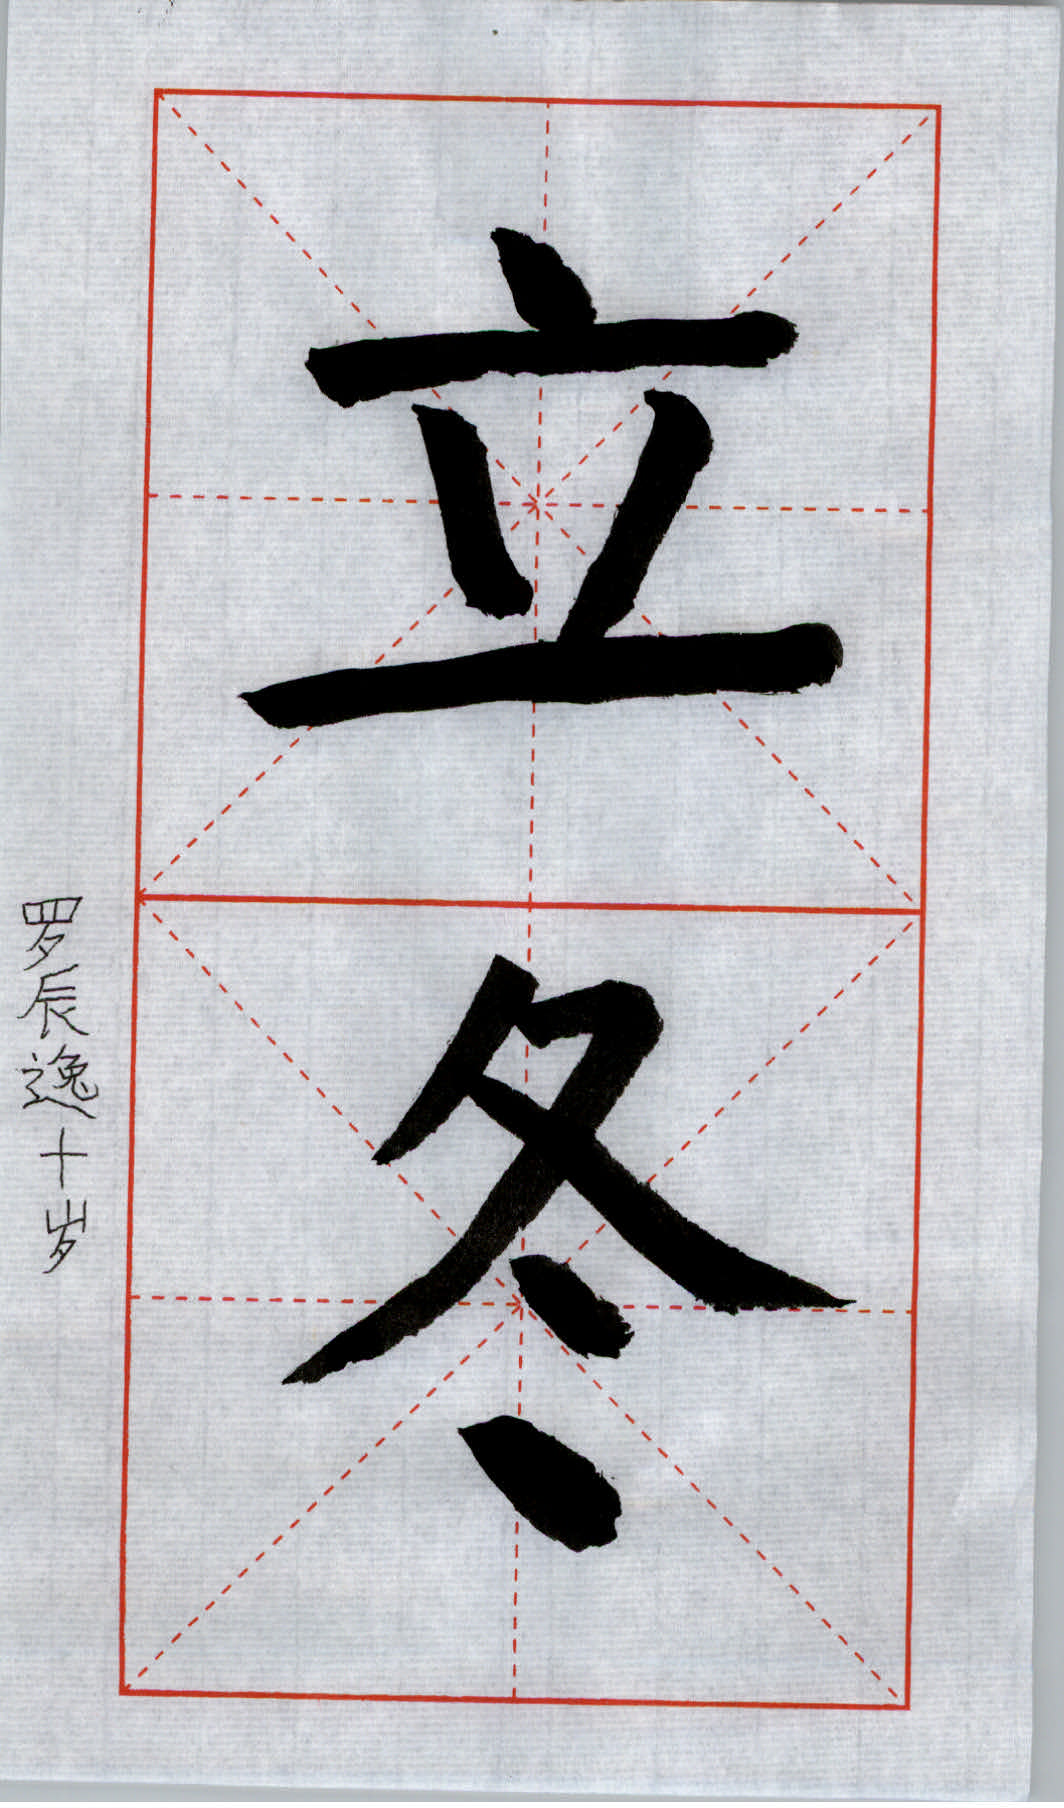 立冬
罗辰逸十岁